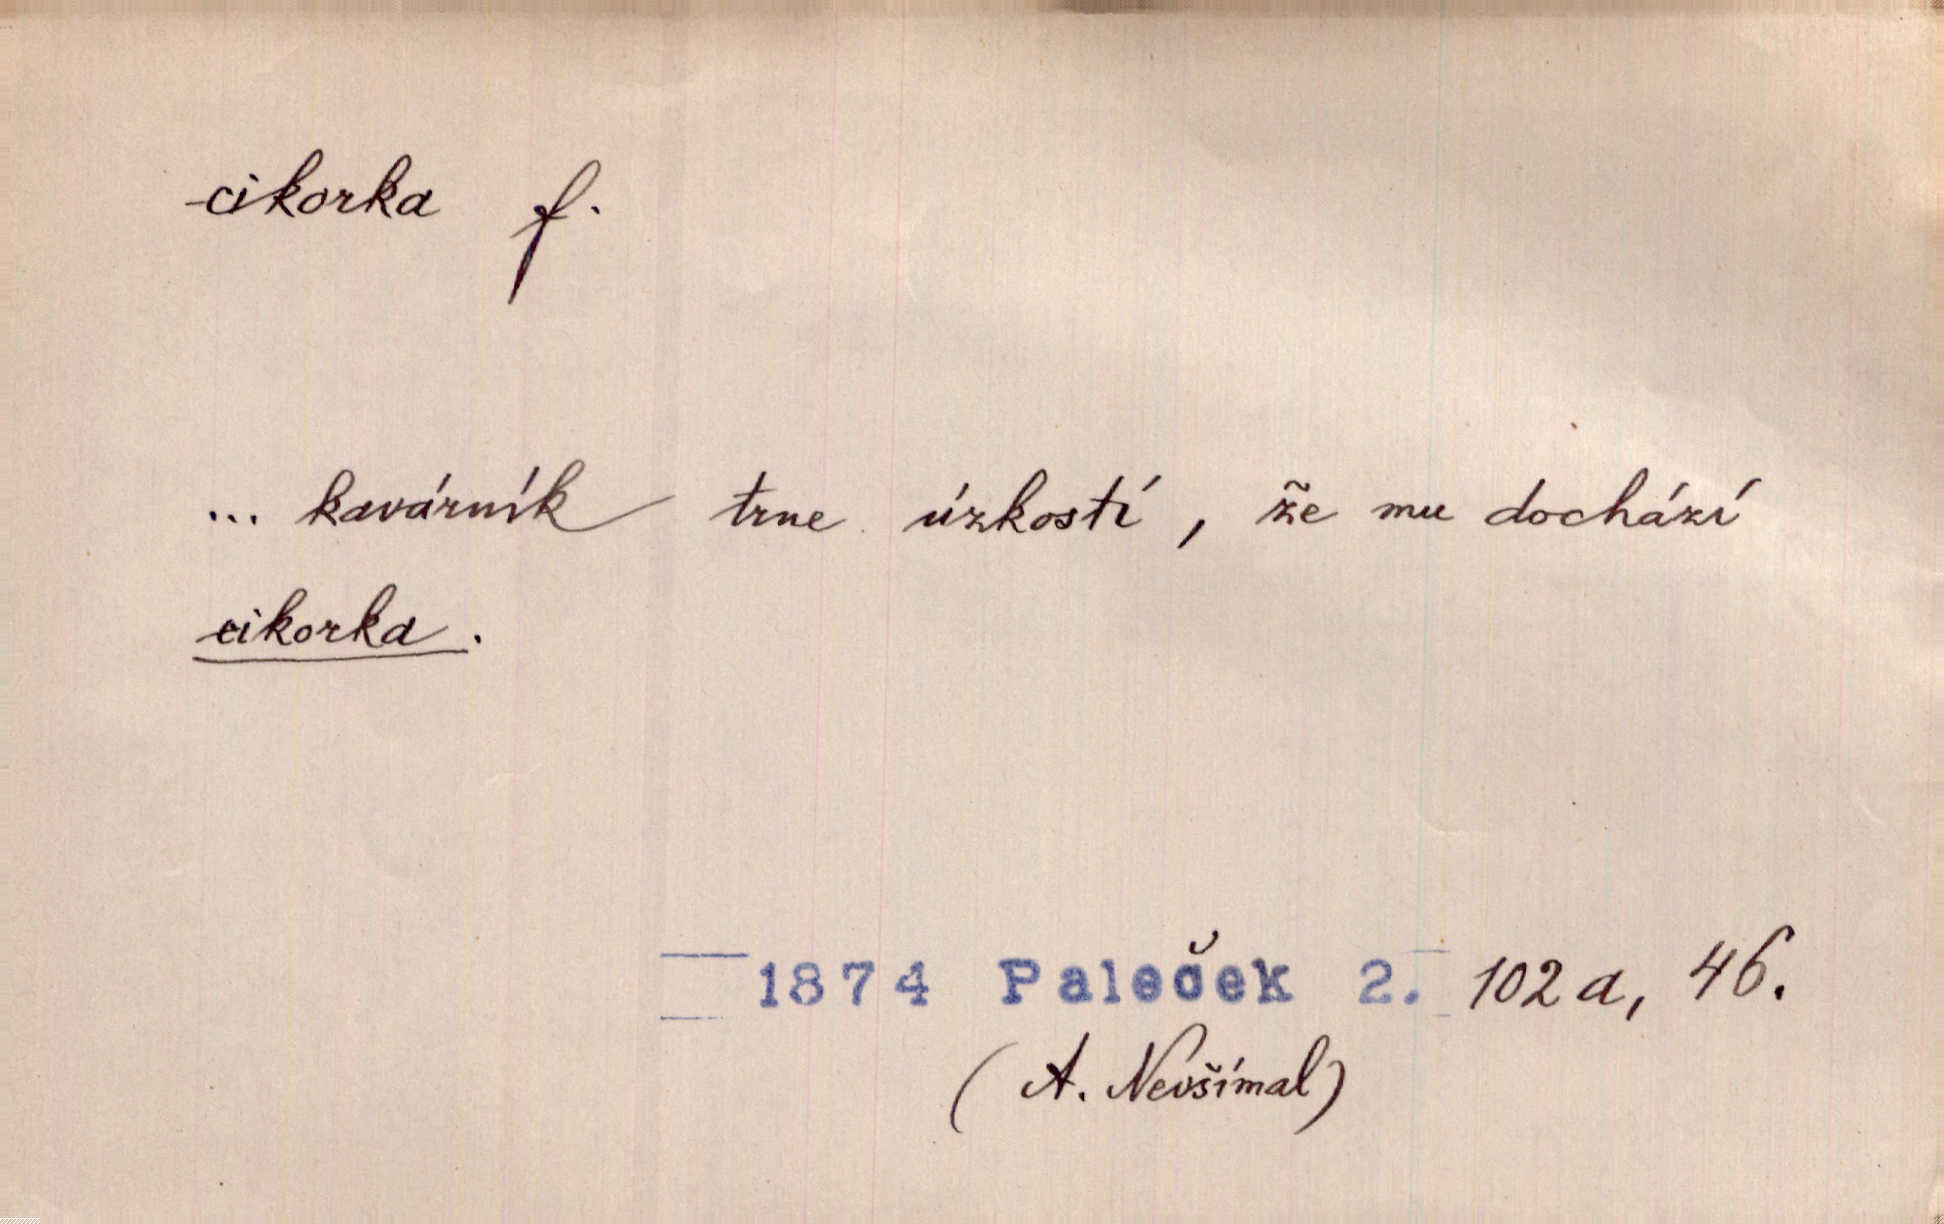 cikorka f.
... kavárník trne úzkostí, že mu dochází
cikorka.
1874 Paleček 2. 102a, 46.
(A. Nevšímal)